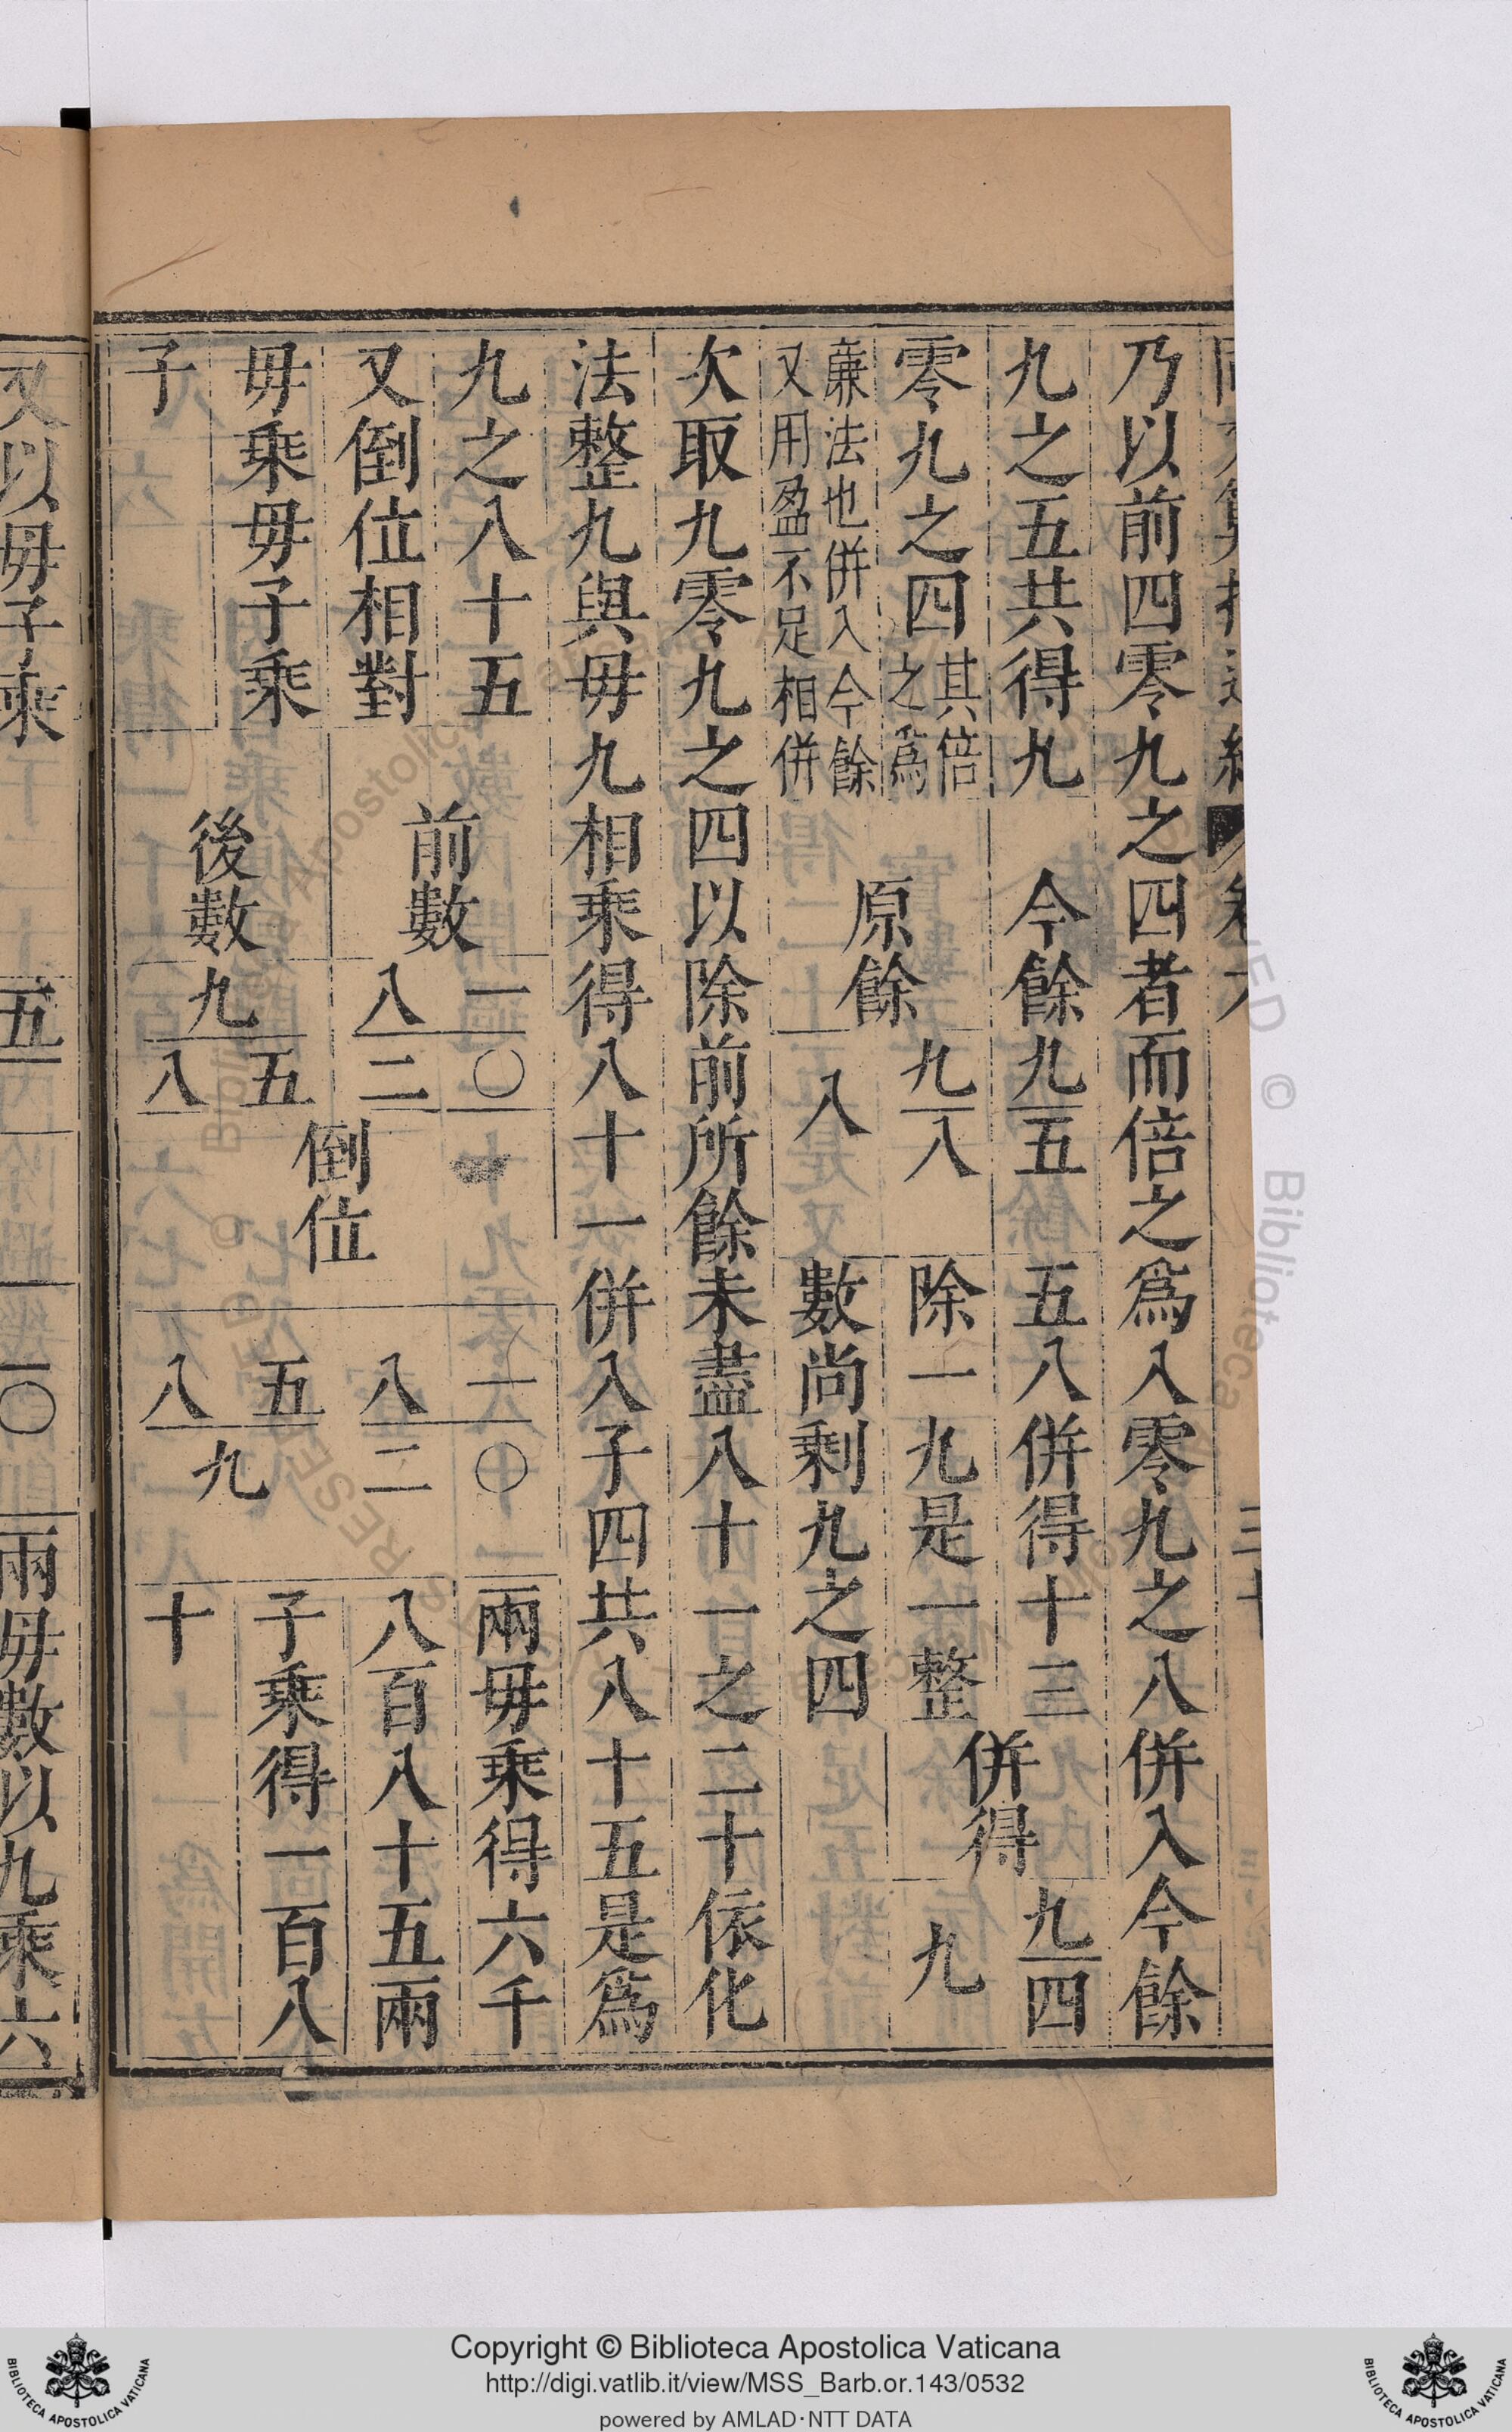 乃以前四零九之四者而倍之爲八零九之八併入今餘
九之五共得九 今餘 九 五 五八併得十三 併得 九 四
零九之四 其倍之爲 九 八 除一九是一整 九
廉法也併入今餘
又用盈不足相併 原餘 八 數尚剩九之四
次取九零九之四以除前所餘未盡八十一之二十依化
法整九與毋九相乘得八十一併入子四共八十五是爲
九之八十五 一〇 一〇 兩毋乘得六千
又倒位相對 前數 八二 八二 八百八十五兩
毋乘毋子乘 五 倒位 五 子乘得一百八
子 後數 九 八 八 九 十
又以毋子乘 五 一〇 兩毋數以九乘六
Copyright © Biblioteca Apostolica Vaticana
http://digi.vatlib.it/view/MSS_Barb.or.143/0532
powered by AMLAD·NTT DATA
BIBLIOTECA APOSTOLICA VATICANA
BIBLIOTECA APOSTOLICA VATICANA